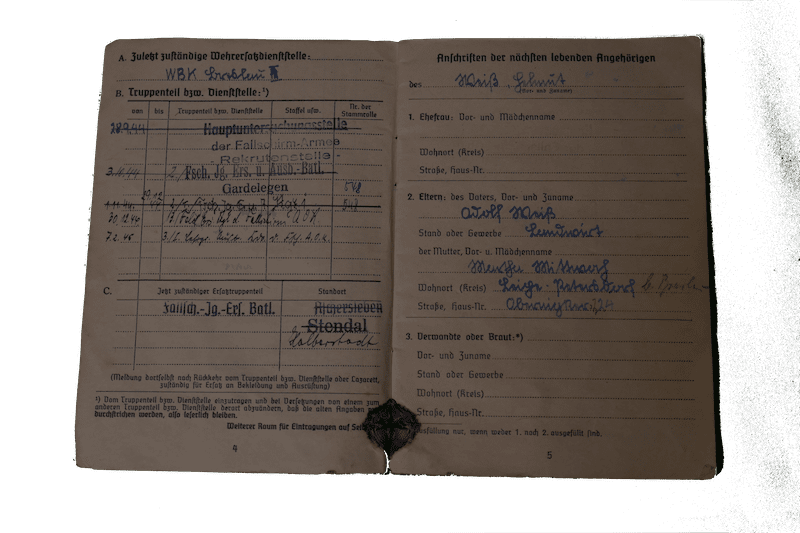 A. Zuletzt zuständige Wehrersatzdienststelle:
WBK Breslau II
B. Truppenteil bzw. Dienststelle:¹)
von bis Truppenteil bzw. Dienststelle Stallel usw. Nr. der Stammrolle
28.9.44 Hauptuntersuchungsstelle
der Fallschirm-Armee
- Rekrutenstelle -
3.10.44 2./Fsch. Jg. Ers. u. Ausb.-Batl.
Gardelegen 548
30.12.44
7.2.45
C. Jetzt zuständiger Ersatztruppenteil Standort
Fallsch.-Jg.-Ers. Batl. Aschersleben
Stendal
Halberstadt
(Meldung dortselbst nach Rückkehr vom Truppenteil bzw. Dienststelle oder Lazarett,
zuständig für Ersatz an Bekleidung und Ausrüstung)
¹) Vom Truppenteil bzw. Dienststelle einzutragen und bei Versetzungen von einem zum
anderen Truppenteil bzw. Dienststelle derart abzuändern, daß die alten Angaben
durchstrichen werden, also leserlich bleiben.
Weiterer Raum für Eintragungen auf
4
Anschriften der nächsten lebenden Angehörigen
des Weiß, Helmut
(Vor- und Zuname)
1. Ehefrau: Vor- und Mädchenname
Wohnort (Kreis)
Straße, Haus-Nr.
2. Eltern: des Vaters, Vor- und Zuname
Adolf Weiß
Stand oder Gewerbe Landwirt
der Mutter, Vor- u. Mädchenname
Martha Mittwoch
Wohnort (Kreis) Petersdorf b. Breslau
Straße, Haus-Nr.
3. Verwandte oder Braut:*)
Vor- und Zuname
Stand oder Gewerbe
Wohnort (Kreis)
Straße, Haus-Nr.
Ausfüllung nur, wenn weder 1. noch 2. ausgefüllt sind.
5